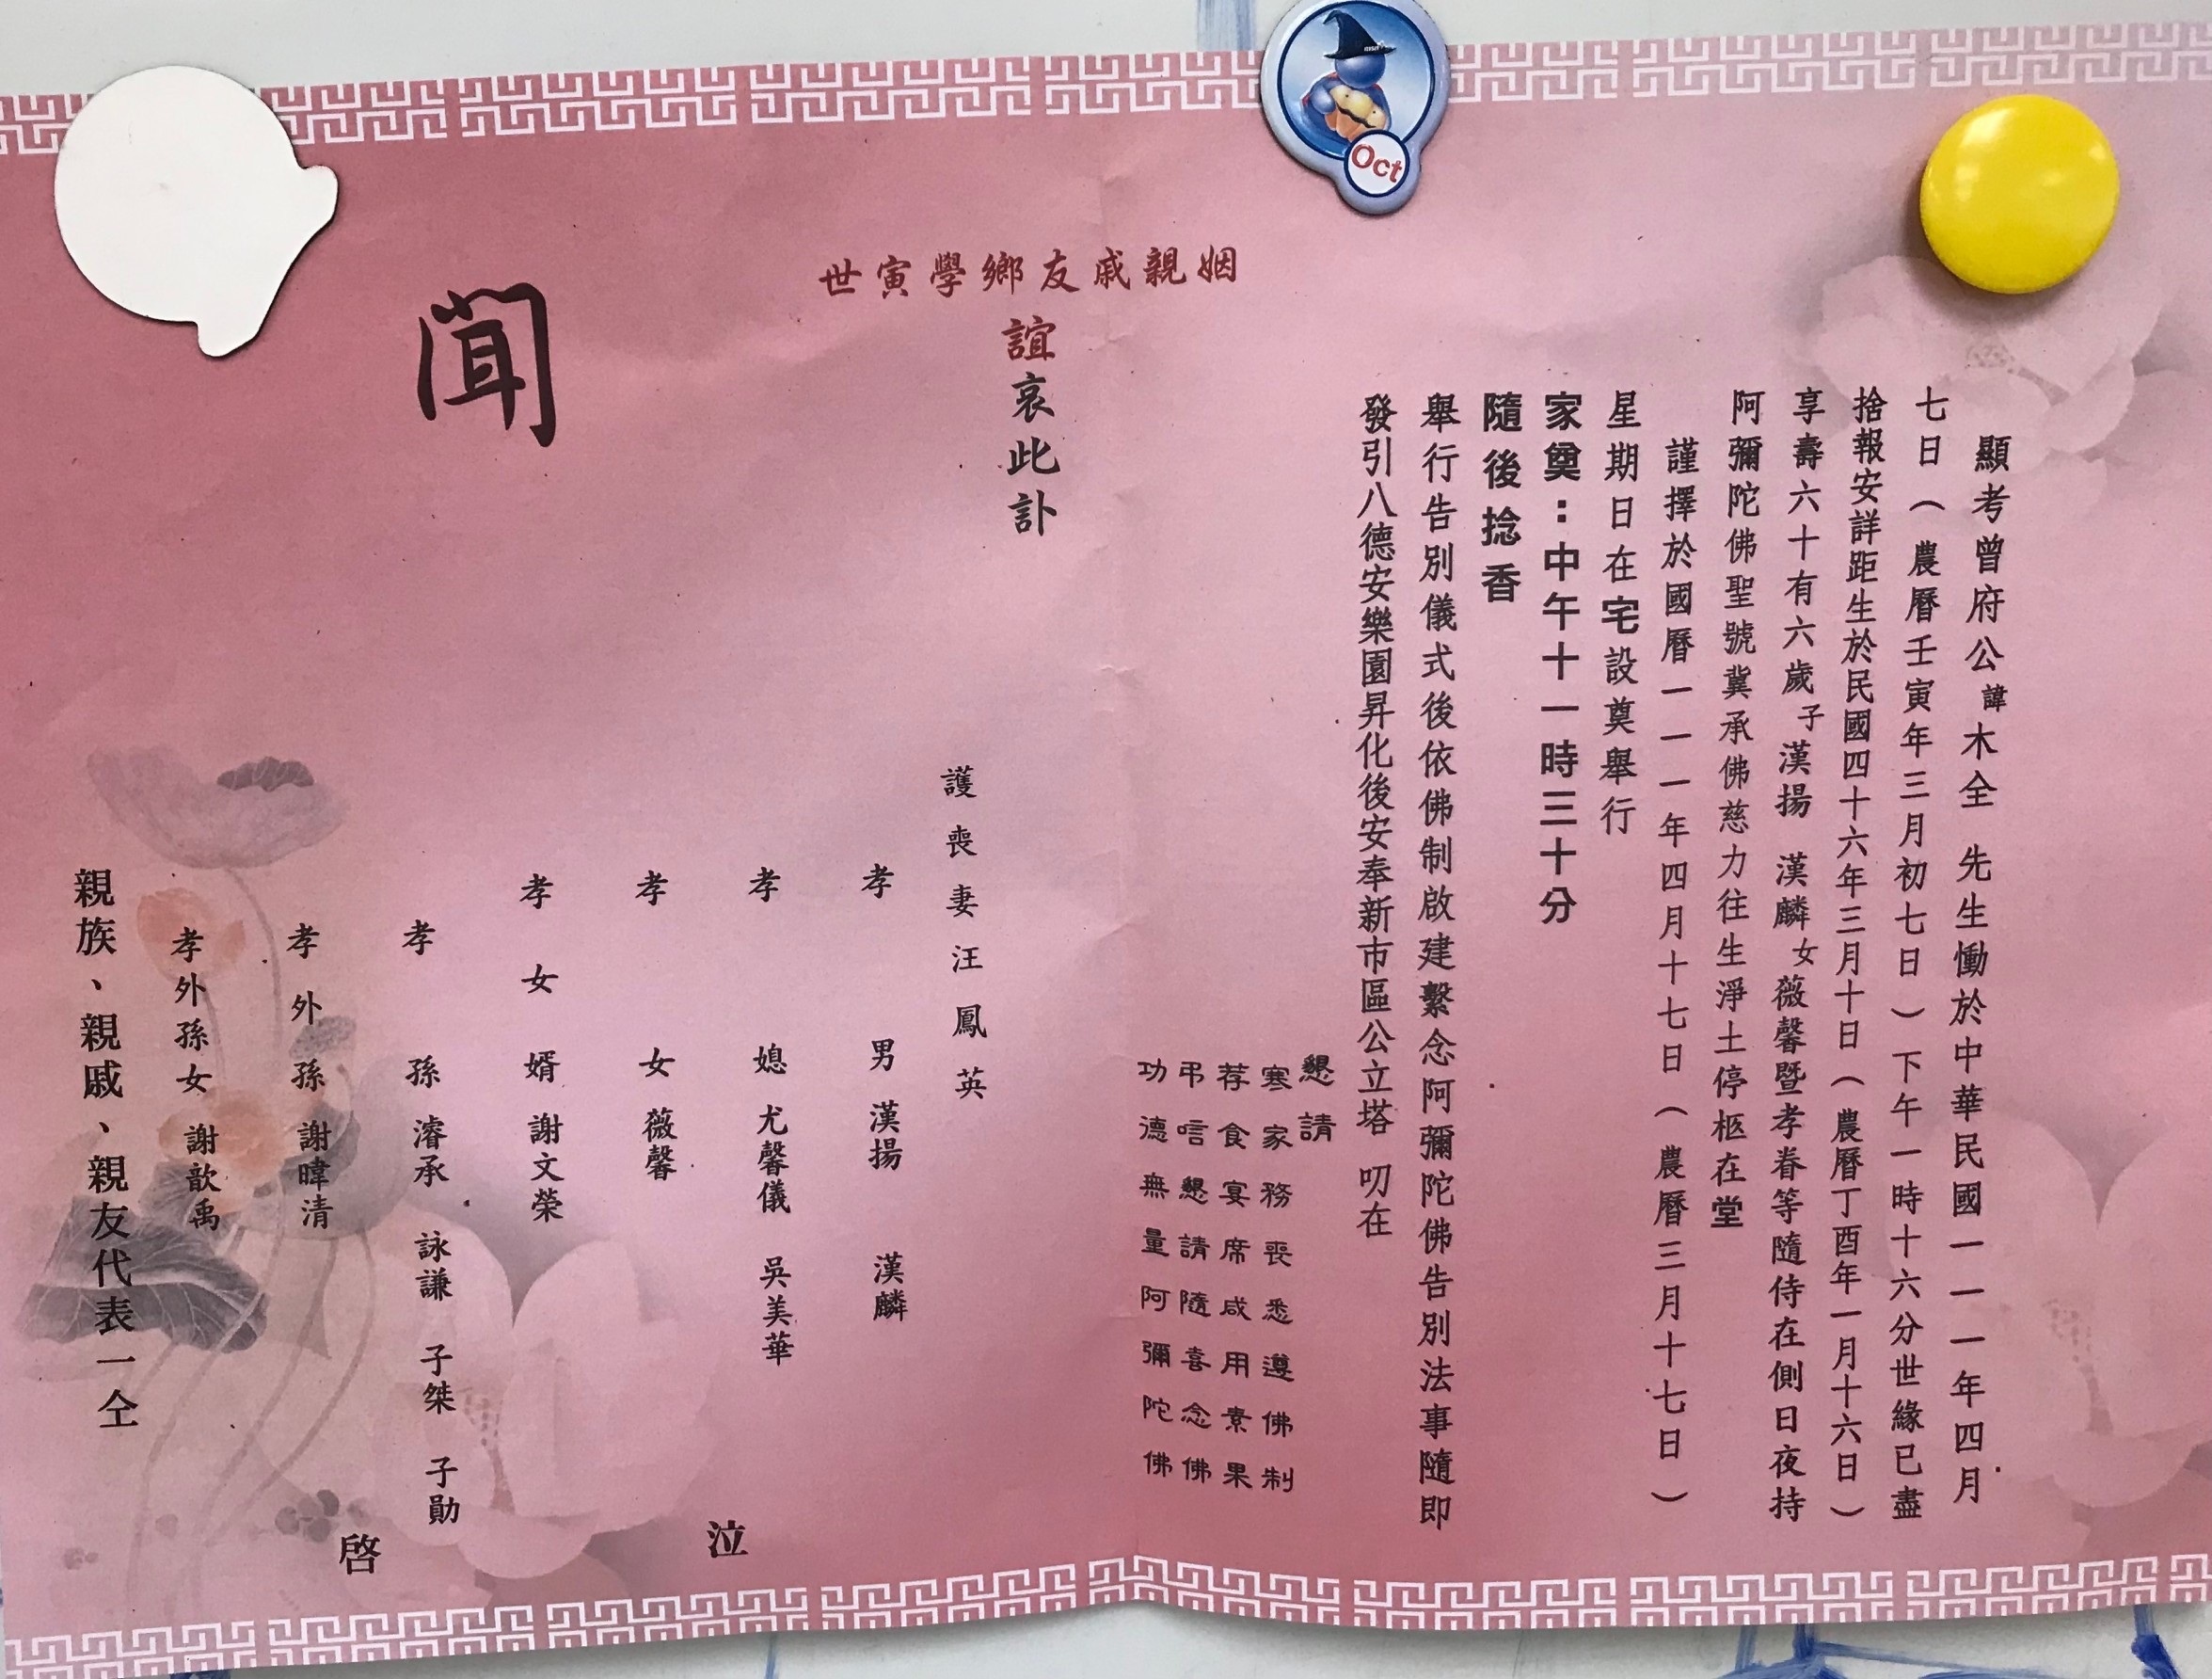 顯考曾府公諱木全 先生慟於中華民國一一一年四月
七日（農曆壬寅年三月初七日）下午一時十六分世緣已盡
捨報安詳距生於民國四十六年三月十日（農曆丁酉年一月十六日）
享壽六十有六歲子漢揚 漢麟女薇馨暨孝眷等隨侍在側日夜持
阿彌陀佛聖號冀承佛慈力往生淨土停柩在堂
謹擇於國曆一一一年四月十七日（農曆三月十七日）
星期日在宅設奠舉行
家奠：中午十一時三十分
隨後捻香
舉行告別儀式後依佛制啟建繫念阿彌陀佛告別法事隨即
發引八德安樂園昇化後安奉新市區公立塔 叨在
懇請
寒家務喪悉遵佛制
荐食宴席咸用素果
弔唁懇請隨喜念佛
功德無量阿彌陀佛
姻親戚友鄉學寅世
誼哀此訃
聞
護喪妻汪鳳英
孝男 漢揚 漢麟
孝媳 尤馨儀 吳美華
孝女 薇馨
孝女婿 謝文榮
孝孫 濬承 詠謙 子桀 子勛
孝外孫 謝暐清
孝外孫女 謝歆禹
泣
啓
親族、親戚、親友代表一仝
Oct